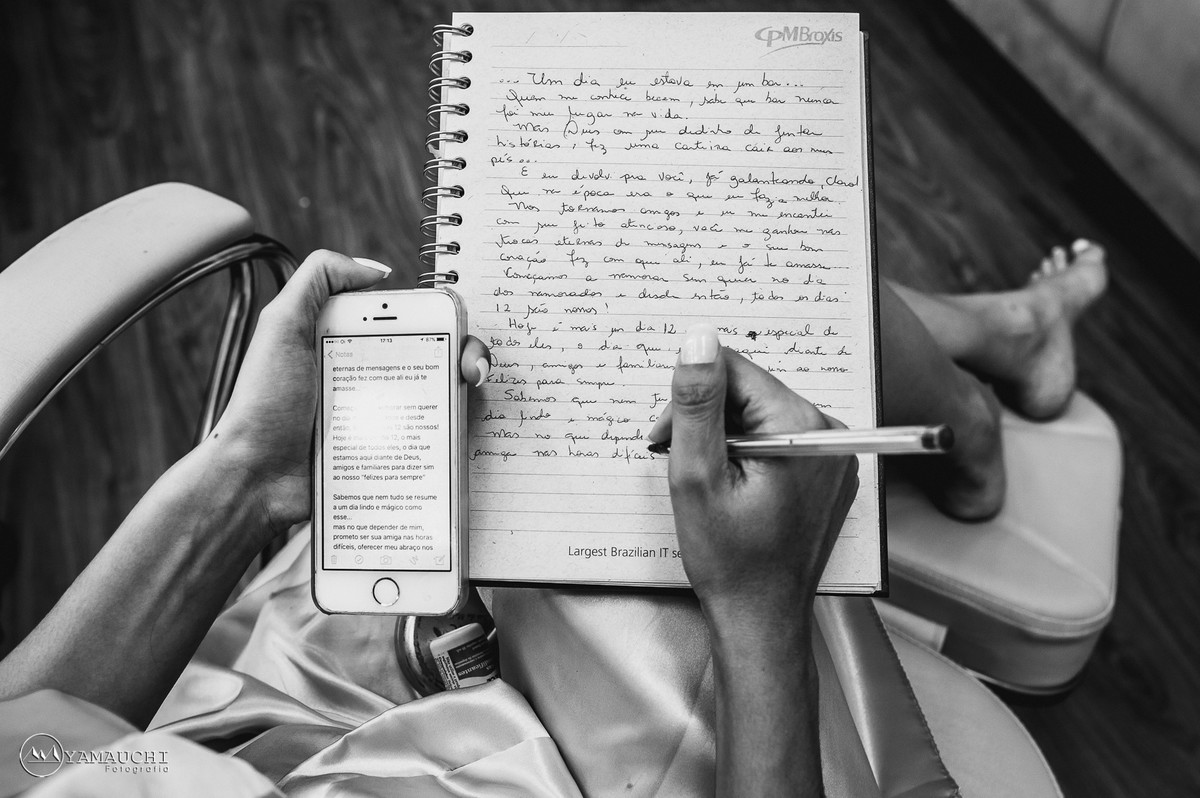 CPMBraxis
... Um dia eu estava em um bar...
Quem me conhece bem, sabe que bar nunca
foi meu lugar na vida.
Mas Deus com seu dedinho de juntar
histórias, fez uma carteira cair aos meus
pés...
E eu devolvi pra você, já galanteando, claro!
Que na época era o que eu fazia melhor.
Nos tornamos amigos e eu me encantei
com seu jeito atencioso, você me ganhou nas
trocas eternas de mensagens e o seu bom
coração fez com que ali, eu já te amasse...
Começamos a namorar sem querer no dia
dos namorados e desde então, todos os dias
12 são nossos!
Hoje é mais um dia 12 mas especial de
todos eles, o dia que aqui diante de
Deus, amigos e familiares sim ao nosso
felizes para sempre.
Sabemos que nem
dia lindo e mágico
Mas no que depende
amiga nas horas difíceis
Largest Brazilian IT se
17:13
87%
Notas
eternas de mensagens e o seu bom
coração fez com que ali eu já te
amasse...
sem querer
no dia e desde
12 são nossos!
Hoje 12, o mais
especial de todos eles, o dia que
estamos aqui diante de Deus,
amigos e familiares para dizer sim
ao nosso "felizes para sempre"
Sabemos que nem tudo se resume
a um dia lindo e mágico como
esse...
mas no que depender de mim,
prometo ser sua amiga nas horas
difíceis, oferecer meu abraço nos
YAMAUCHI
Fotografia